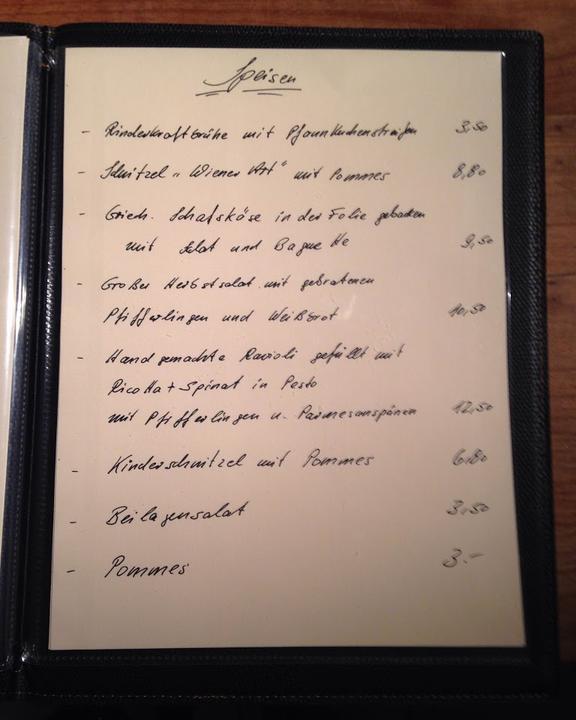 Speisen
- Rinderkraftbrühe mit Pfannkuchenstreifen 3,50
- Schnitzel "Wiener Art" mit Pommes 8,80
- Griech. Schafskäse in der Folie gebacken
mit Salat und Baguette 9,50
- Großer Herbstsalat mit gebratenen
Pfifferlingen und Weißbrot 10,50
- Handgemachte Ravioli gefüllt mit
Ricotta + Spinat in Pesto
mit Pfifferlingen u. Parmesanspänen 12,50
- Kinderschnitzel mit Pommes 6,80
- Beilagensalat 3,50
- Pommes 3.-